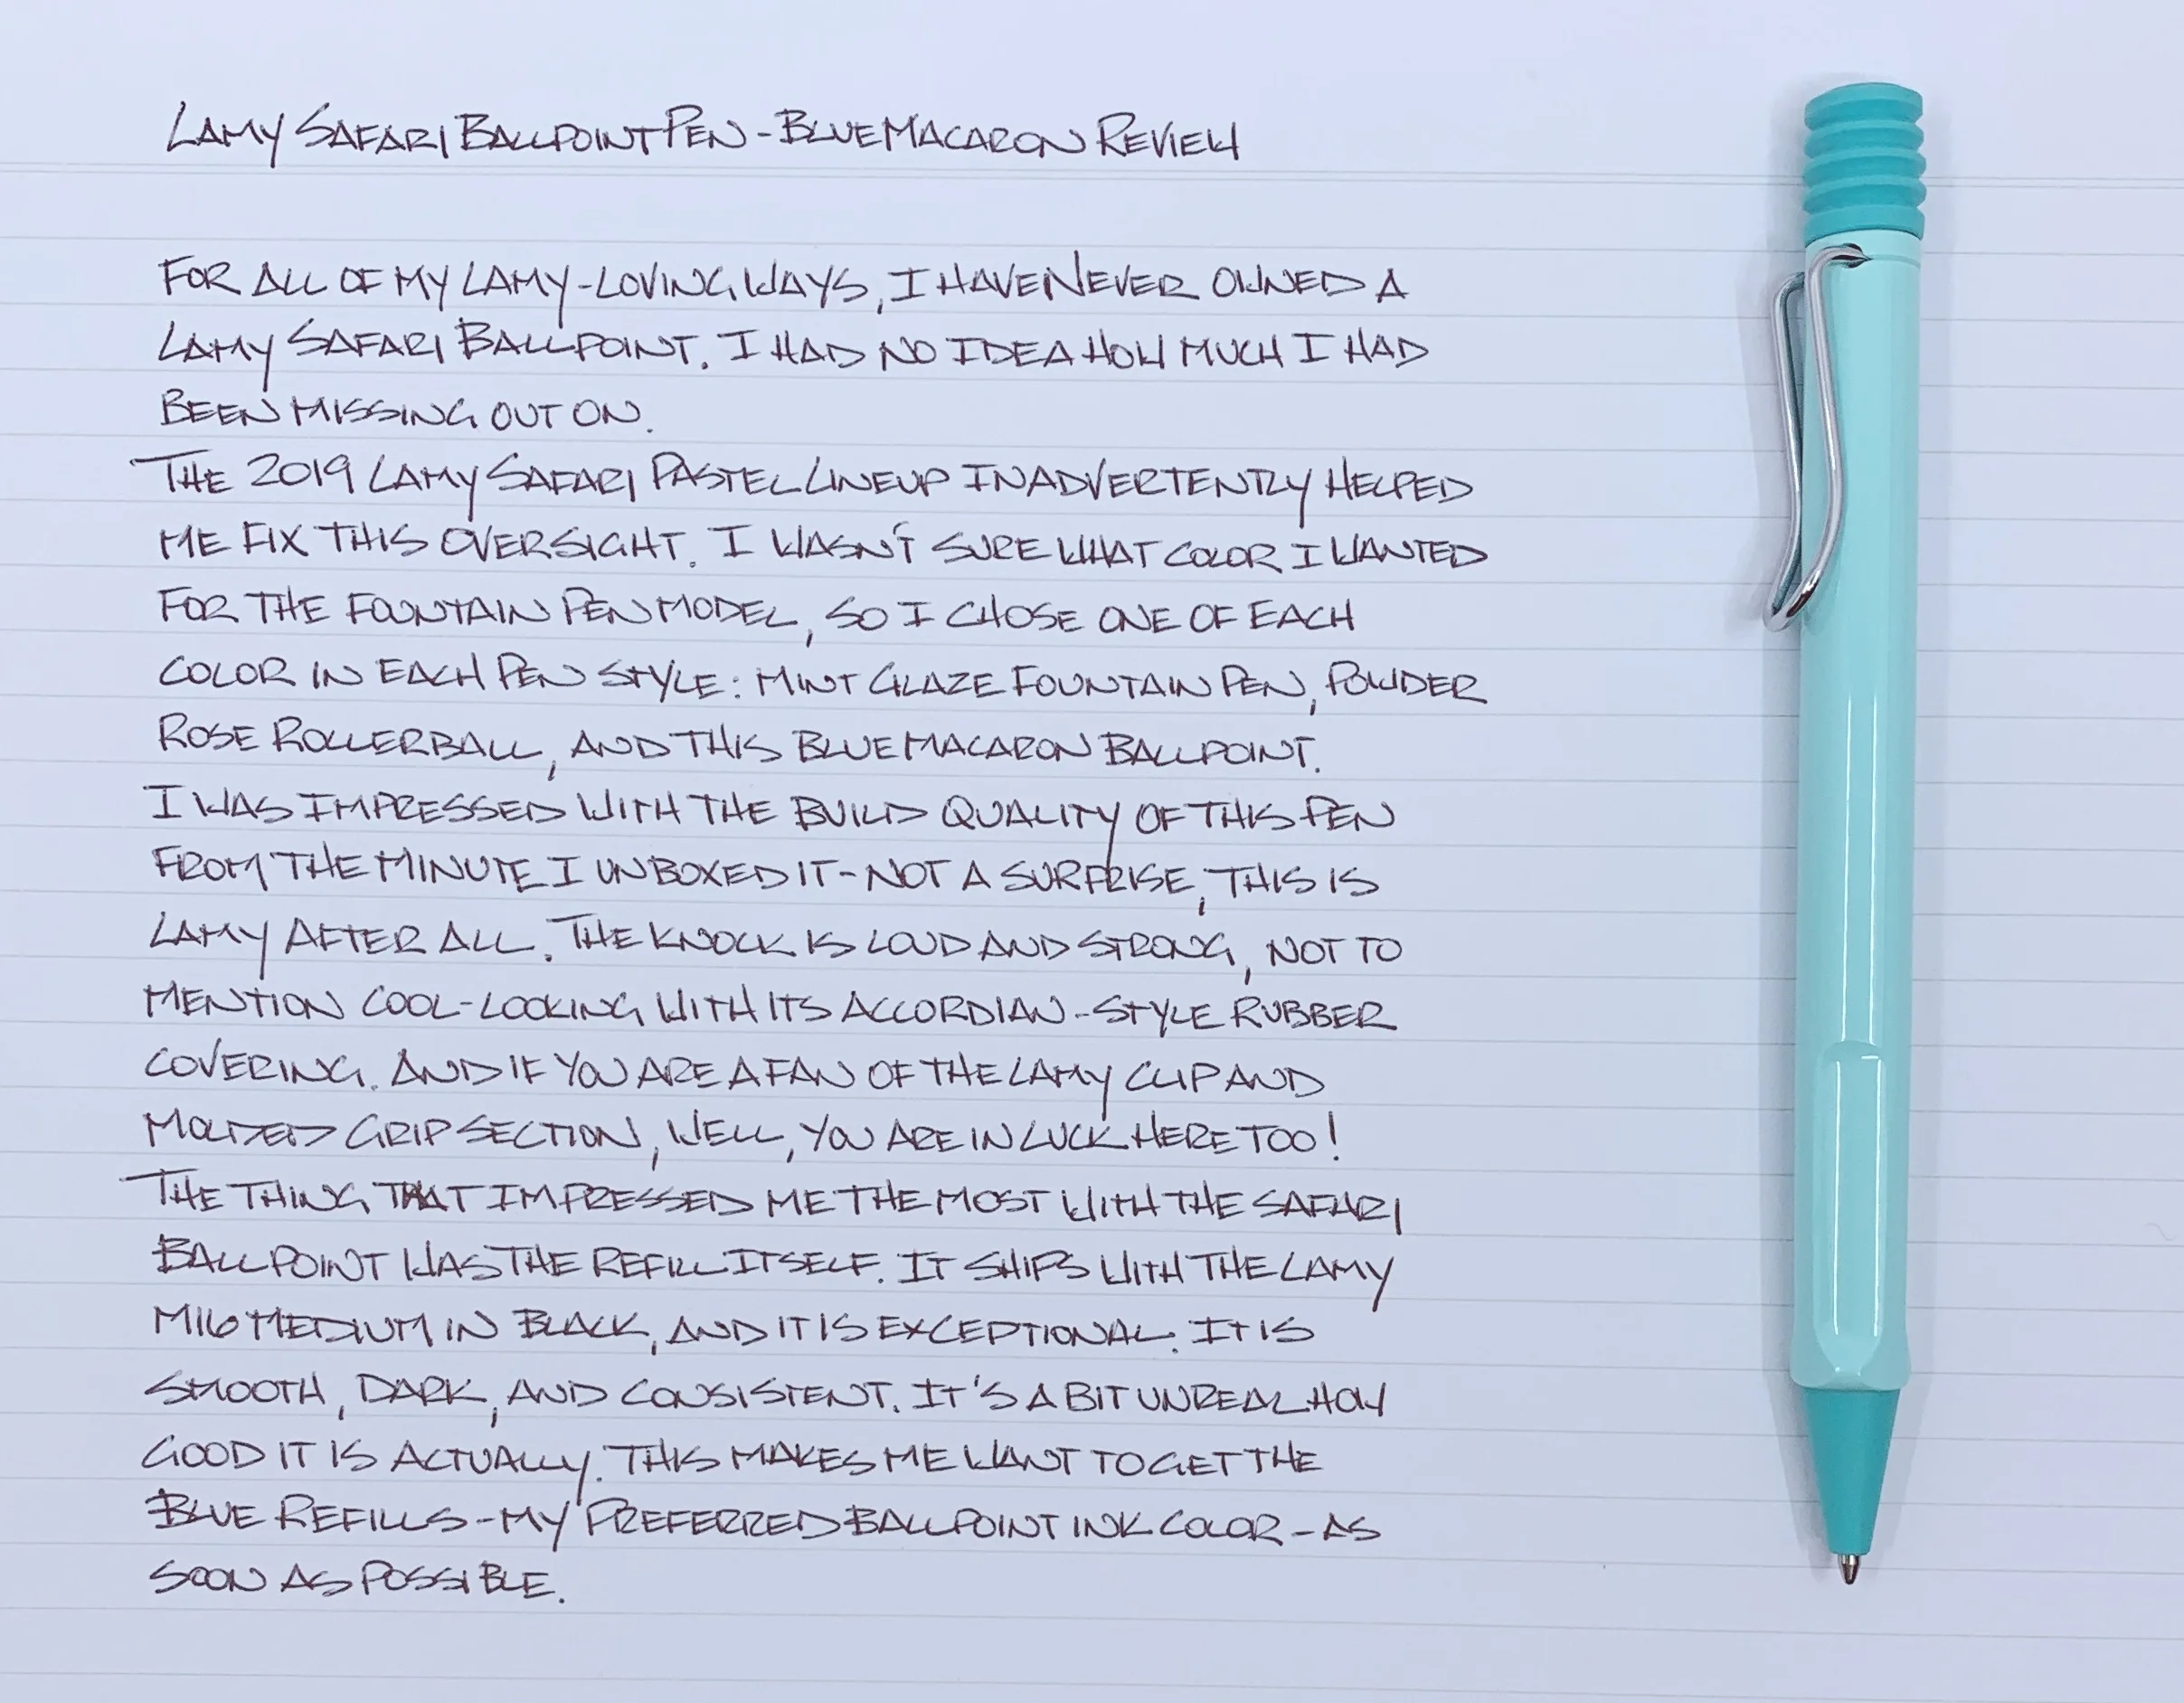 LAMY SAFARI BALLPOINT PEN - BLUE MACARON REVIEW
FOR ALL OF MY LAMY-LOVING WAYS, I HAVE NEVER OWNED A
LAMY SAFARI BALLPOINT. I HAD NO IDEA HOW MUCH I HAD
BEEN MISSING OUT ON.
THE 2019 LAMY SAFARI PASTEL LINEUP INADVERTENTLY HELPED
ME FIX THIS OVERSIGHT. I WASN'T SURE WHAT COLOR I WANTED
FOR THE FOUNTAIN PEN MODEL, SO I CHOSE ONE OF EACH
COLOR IN EACH PEN STYLE: MINT GLAZE FOUNTAIN PEN, POWDER
ROSE ROLLERBALL, AND THIS BLUE MACARON BALLPOINT.
I WAS IMPRESSED WITH THE BUILD QUALITY OF THIS PEN
FROM THE MINUTE I UNBOXED IT - NOT A SURPRISE, THIS IS
LAMY AFTER ALL. THE KNOCK IS LOUD AND STRONG, NOT TO
MENTION COOL-LOOKING WITH ITS ACCORDIAN-STYLE RUBBER
COVERING. AND IF YOU ARE A FAN OF THE LAMY CLIP AND
MOLDED GRIP SECTION, WELL, YOU ARE IN LUCK HERE TOO!
THE THING THAT IMPRESSED ME THE MOST WITH THE SAFARI
BALLPOINT WAS THE REFILL ITSELF. IT SHIPS WITH THE LAMY
M16 MEDIUM IN BLACK, AND IT IS EXCEPTIONAL. IT IS
SMOOTH, DARK, AND CONSISTENT. IT'S A BIT UNREAL HOW
GOOD IT IS ACTUALLY. THIS MAKES ME WANT TO GET THE
BLUE REFILLS - MY PREFERRED BALLPOINT INK COLOR - AS
SOON AS POSSIBLE.